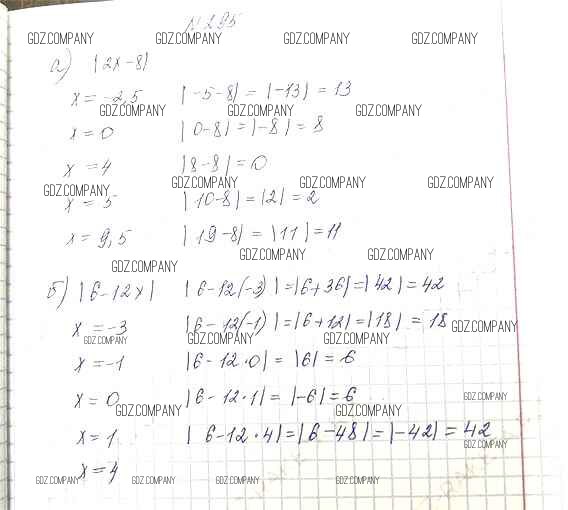 №295
GDZ.COMPANY GDZ.COMPANY GDZ.COMPANY GDZ.COMPANY
а) |2x-8|
x = -2,5 |-5-8| = |-13| = 13
GDZ.COMPANY GDZ.COMPANY GDZ.COMPANY
x = 0 |0-8| = |-8| = 8
x = 4 |8-8| = 0
GDZ.COMPANY GDZ.COMPANY GDZ.COMPANY GDZ.COMPANY
x = 5 |10-8| = |2| = 2
x = 9,5 |19-8| = |11| = 11
GDZ.COMPANY GDZ.COMPANY
GDZ.COMPANY
б) |6-12x| |6-12(-3)| = |6+36| = |42| = 42
x = -3 |6-12(-1)| = |6+12| = |18| = 18 GDZ.COMPANY
GDZ.COMPANY GDZ.COMPANY GDZ.COMPANY
x = -1 |6-12·0| = |6| = 6
x = 0 |6-12·1| = |-6| = 6 GDZ.COMPANY
GDZ.COMPANY GDZ.COMPANY
x = 1 |6-12·4| = |6-48| = |-42| = 42
GDZ.COMPANY
x = 4
GDZ.COMPANY GDZ.COMPANY GDZ.COMPANY GDZ.COMPANY